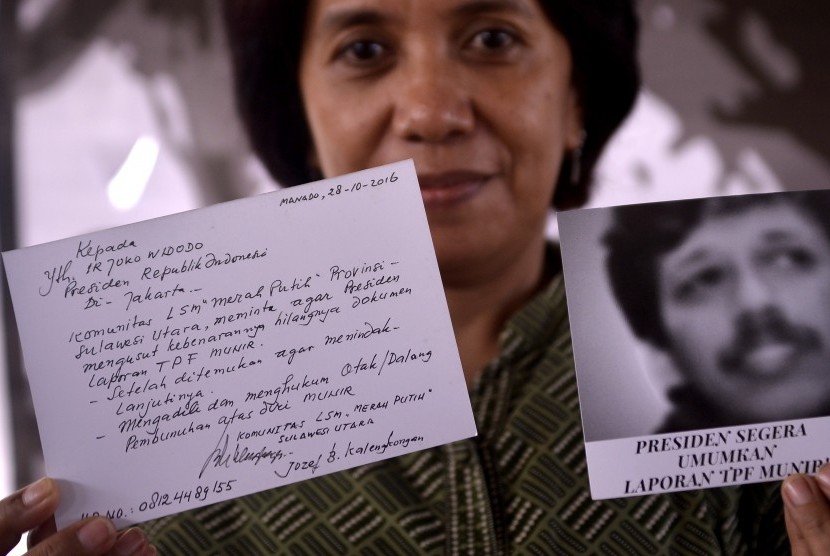 MANADO, 28-10-2016
Kepada
Yth. IR JOKO WIDODO
Presiden Republik Indonesia
Di - Jakarta. -
Komunitas LSM "Merah Putih" Provinsi -
Sulawesi Utara, meminta agar Presiden
mengusut kebenarannya hilangnya dokumen
Laporan TPF MUNIR.
- Setelah ditemukan agar menindak -
Lanjutinya.
- Mengadili dan menghukum Otak/Dalang
Pembunuhan atas diri MUNIR
KOMUNITAS LSM "MERAH PUTIH"
SULAWESI UTARA
Jozef B. Kalengkongan
NO.: 08124489155
PRESIDEN SEGERA
UMUMKAN
LAPORAN TPF MUNIR